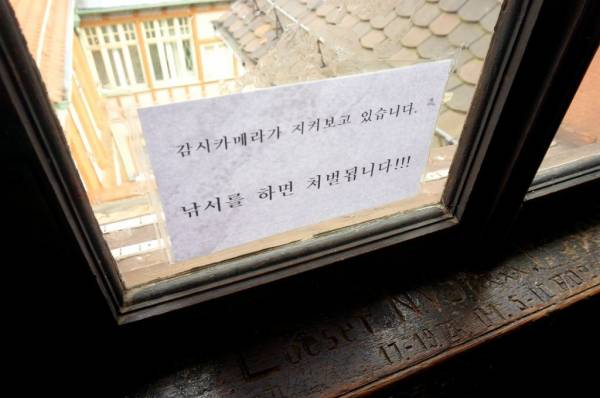 감시카메라가 지켜보고 있습니다.
낚시를 하면 처벌됩니다!!!
Loeser